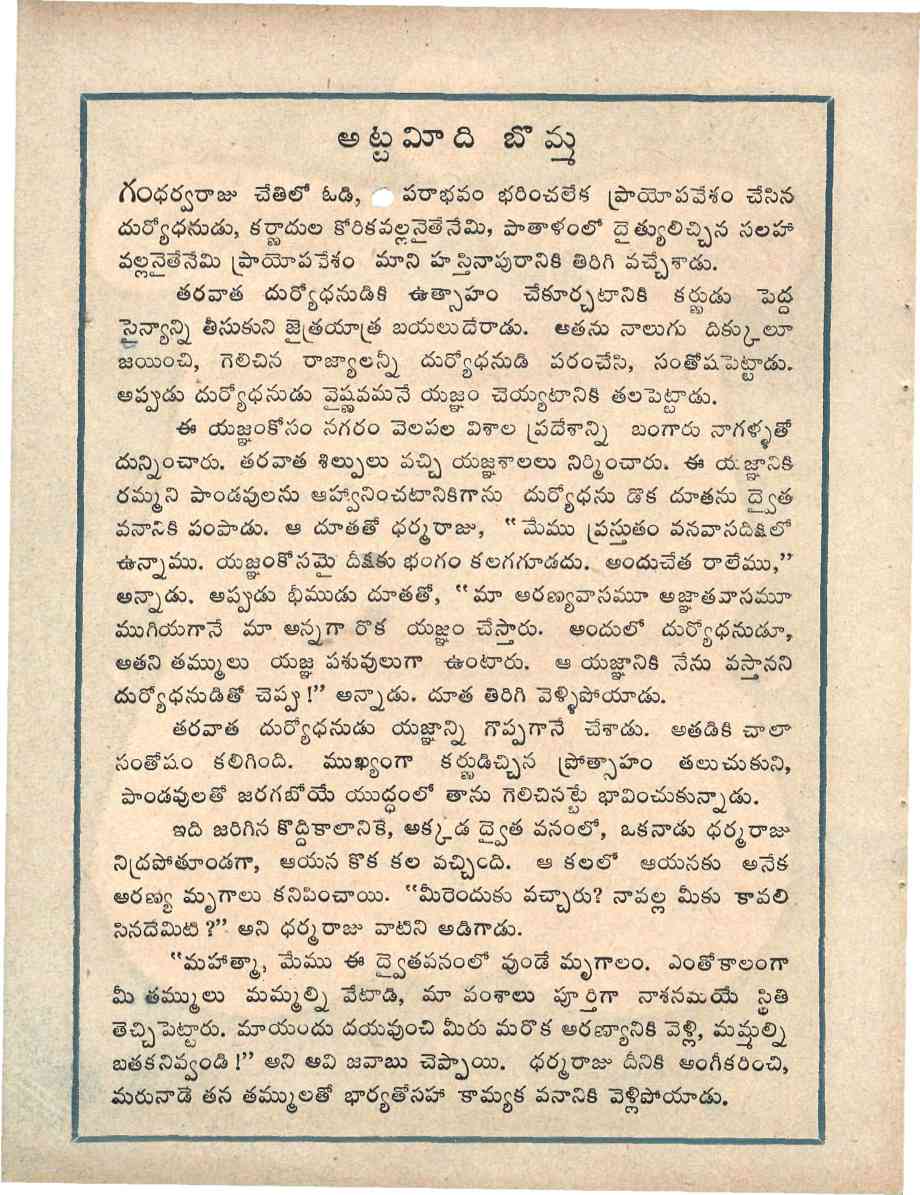 అట్టమీది బొమ్మ
గంధర్వరాజు చేతిలో ఓడి, పరాభవం భరించలేక ప్రాయోపవేశం చేసిన
దుర్యోధనుడు, కర్ణాదుల కోరికవల్లనైతేనేమి, పాతాళంలో దైత్యులిచ్చిన సలహా
వల్లనైతేనేమి ప్రాయోపవేశం మాని హస్తినాపురానికి తిరిగి వచ్చేశాడు.
తరవాత దుర్యోధనుడికి ఉత్సాహం చేకూర్చటానికి కర్ణుడు పెద్ద
సైన్యాన్ని తీసుకుని జైత్రయాత్ర బయలుదేరాడు. అతను నాలుగు దిక్కులూ
జయించి, గెలిచిన రాజ్యాలన్నీ దుర్యోధనుడి పరంచేసి, సంతోషపెట్టాడు.
అప్పుడు దుర్యోధనుడు వైష్ణవమనే యజ్ఞం చెయ్యటానికి తలపెట్టాడు.
ఈ యజ్ఞంకోసం నగరం వెలపల విశాల ప్రదేశాన్ని బంగారు నాగళ్ళతో
దున్నించారు. తరవాత శిల్పులు వచ్చి యజ్ఞశాలలు నిర్మించారు. ఈ యజ్ఞానికి
రమ్మని పాండవులను ఆహ్వానించటానికిగాను దుర్యోధను డొక దూతను ద్వైత
వనానికి పంపాడు. ఆ దూతతో ధర్మరాజు, “మేము ప్రస్తుతం వనవాసదీక్షలో
ఉన్నాము. యజ్ఞంకోసమై దీక్షకు భంగం కలగగూడదు. అందుచేత రాలేము,”
అన్నాడు. అప్పుడు భీముడు దూతతో, “మా అరణ్యవాసమూ అజ్ఞాతవాసమూ
ముగియగానే మా అన్నగా రొక యజ్ఞం చేస్తారు. అందులో దుర్యోధనుడూ,
అతని తమ్ములు యజ్ఞ పశువులుగా ఉంటారు. ఆ యజ్ఞానికి నేను వస్తానని
దుర్యోధనుడితో చెప్పు!” అన్నాడు. దూత తిరిగి వెళ్ళిపోయాడు.
తరవాత దుర్యోధనుడు యజ్ఞాన్ని గొప్పగానే చేశాడు. అతడికి చాలా
సంతోషం కలిగింది. ముఖ్యంగా కర్ణుడిచ్చిన ప్రోత్సాహం తలుచుకుని,
పాండవులతో జరగబోయే యుద్ధంలో తాను గెలిచినట్టే భావించుకున్నాడు.
ఇది జరిగిన కొద్దికాలానికే, అక్కడ ద్వైత వనంలో, ఒకనాడు ధర్మరాజు
నిద్రపోతూండగా, ఆయన కొక కల వచ్చింది. ఆ కలలో ఆయనకు అనేక
అరణ్య మృగాలు కనిపించాయి. “మీరెందుకు వచ్చారు? నావల్ల మీకు కావలి
సినదేమిటి?” అని ధర్మరాజు వాటిని అడిగాడు.
“మహాత్మా, మేము ఈ ద్వైతవనంలో వుండే మృగాలం. ఎంతోకాలంగా
మీ తమ్ములు మమ్మల్ని వేటాడి, మా వంశాలు పూర్తిగా నాశనమయే స్థితి
తెచ్చిపెట్టారు. మాయందు దయవుంచి మీరు మరొక అరణ్యానికి వెళ్లి, మమ్మల్ని
బతకనివ్వండి!” అని అవి జవాబు చెప్పాయి. ధర్మరాజు దీనికి అంగీకరించి,
మరునాడే తన తమ్ములతో భార్యతోసహా కామ్యక వనానికి వెళ్లిపోయాడు.